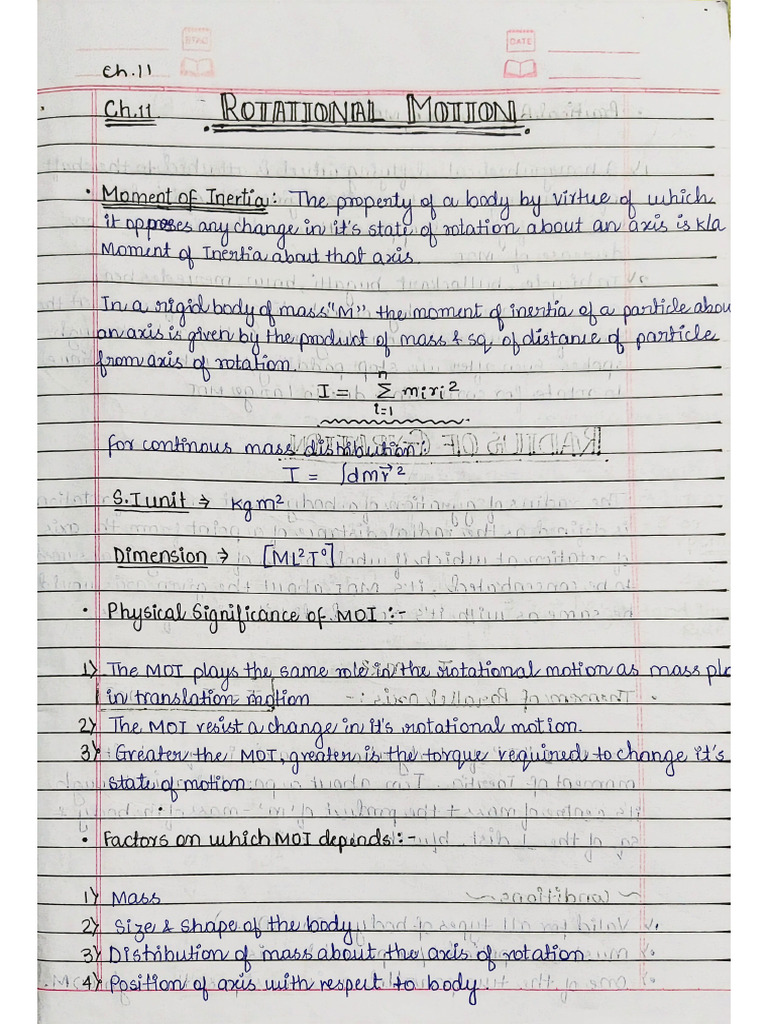 STAQ
DATE
Ch.11
Ch.11 ROTATIONAL MOTION
• Moment of Inertia: The property of a body by virtue of which
it opposes any change in it's state of rotation about an axis is k/a
Moment of Inertia about that axis.
In a rigid body of mass "M" the moment of inertia of a particle abou
an axis is given by the product of mass & sq. of distance of particle
from axis of rotation.
I = n Σ i=1 miri²
for continous mass distribution:
I = ∫dmr⃗²
S.I unit → kgm²
Dimension → [ML²T⁰]
• Physical Significance of MOI :-
1) The MOI plays the same role in the rotational motion as mass pla
in translation motion
2) The MOI resist a change in it's rotational motion.
3) Greater the MOI, greater is the torque required to change it's
state of motion.
• Factors on which MOI depends:-
1) Mass
2) Size & shape of the body
3) Distribution of mass about the axis of rotation
4) Position of axis with respect to body.